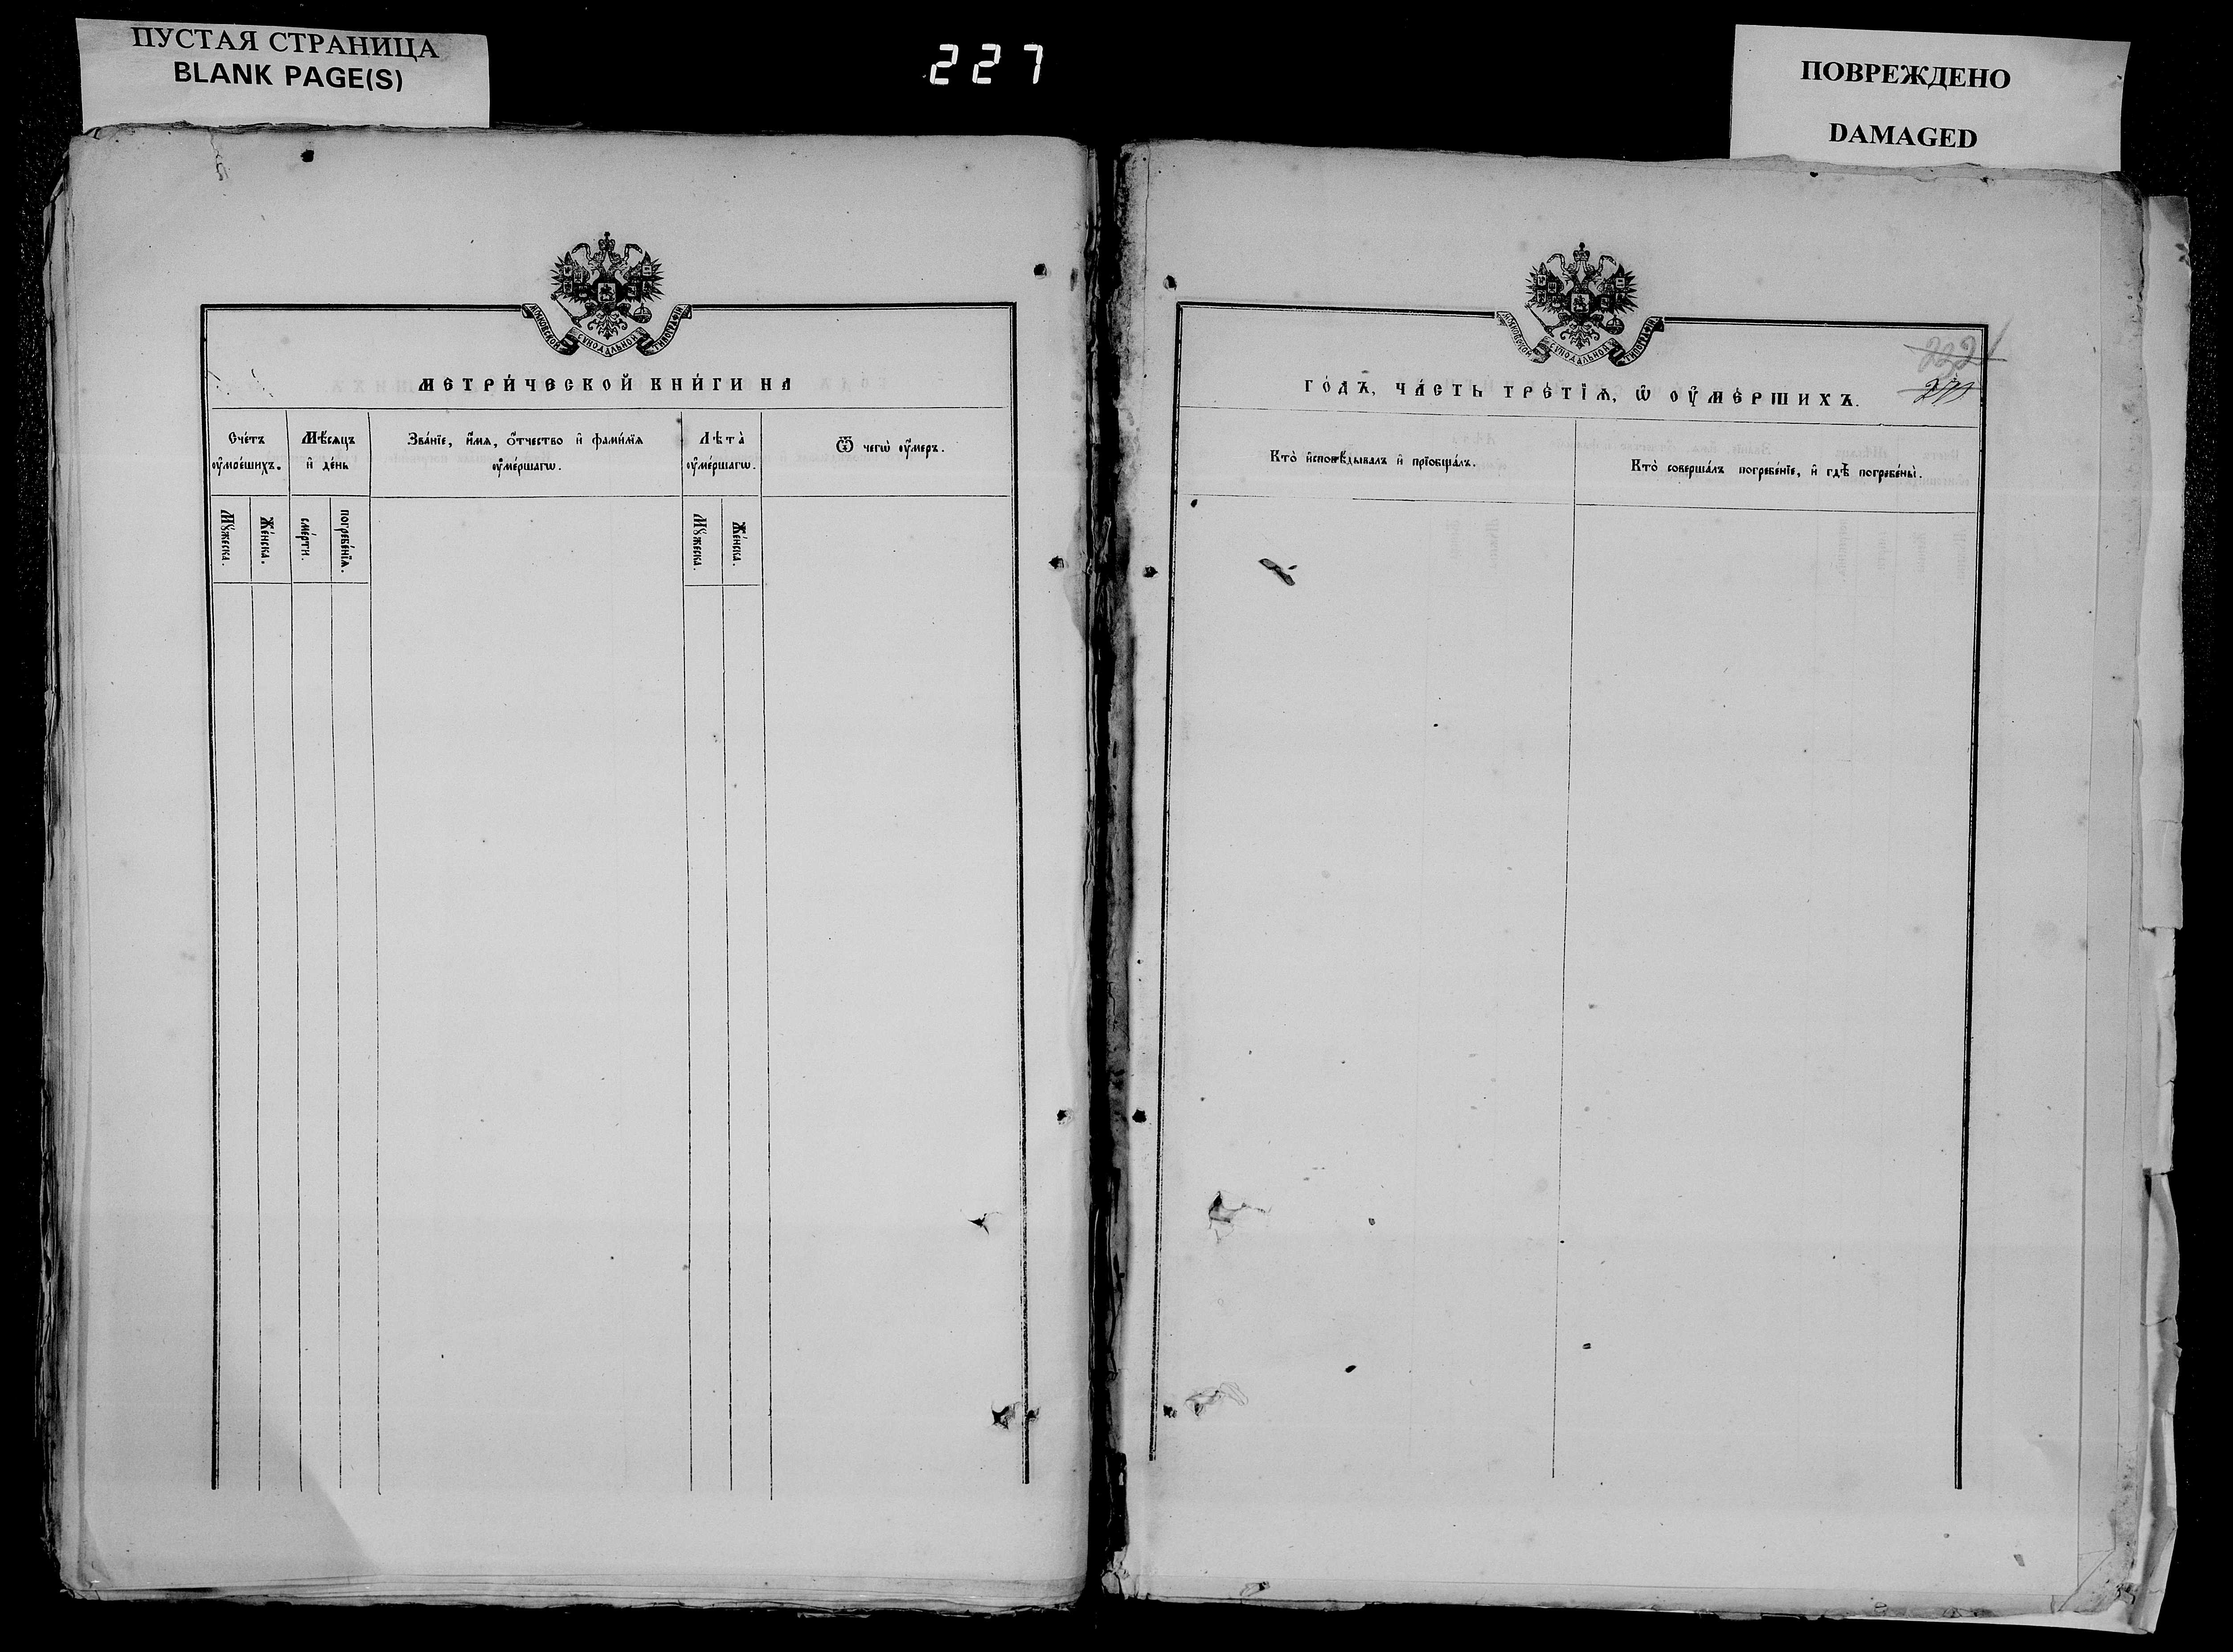 ПУСТАЯ СТРАНИЦА
BLANK PAGE(S)
227
ПОВРЕЖДЕНО
DAMAGED
МОСКОВСКОЙ СѴНОДАЛЬНОЙ ТИПОГРАФІИ
МЕТРИ́ЧЕСКОЙ КНИ́ГИ НА
Сче́тъ
ᲂу҆мо́ешихъ.
Мѣ́сяцъ
и҆ де́нь
Зва́нїе, и҆́мя, ѻ҆́тчество и҆ фами́лїя
ᲂу҆ме́ршагѡ.
Лѣта̀
ᲂу҆ме́ршагѡ.
Ѿ чегѡ̀ ᲂу҆́меръ.
Мꙋ́жеска.
Же́нска.
сме́рти.
погребе́нїѧ.
Мꙋ́жеска.
Же́нска.
МОСКОВСКОЙ СѴНОДАЛЬНОЙ ТИПОГРАФІИ
ГО́ДЪ, ЧА́СТЬ ТРЕ́ТЇѦ, Ѡ҆ ОУ҆МЕ́РШИХЪ.
Кто̀ и҆сповѣ́дывалъ и҆ прїобща́лъ.
Кто̀ соверша́лъ погребе́нїе, и҆ гдѣ̀ погребены̀.